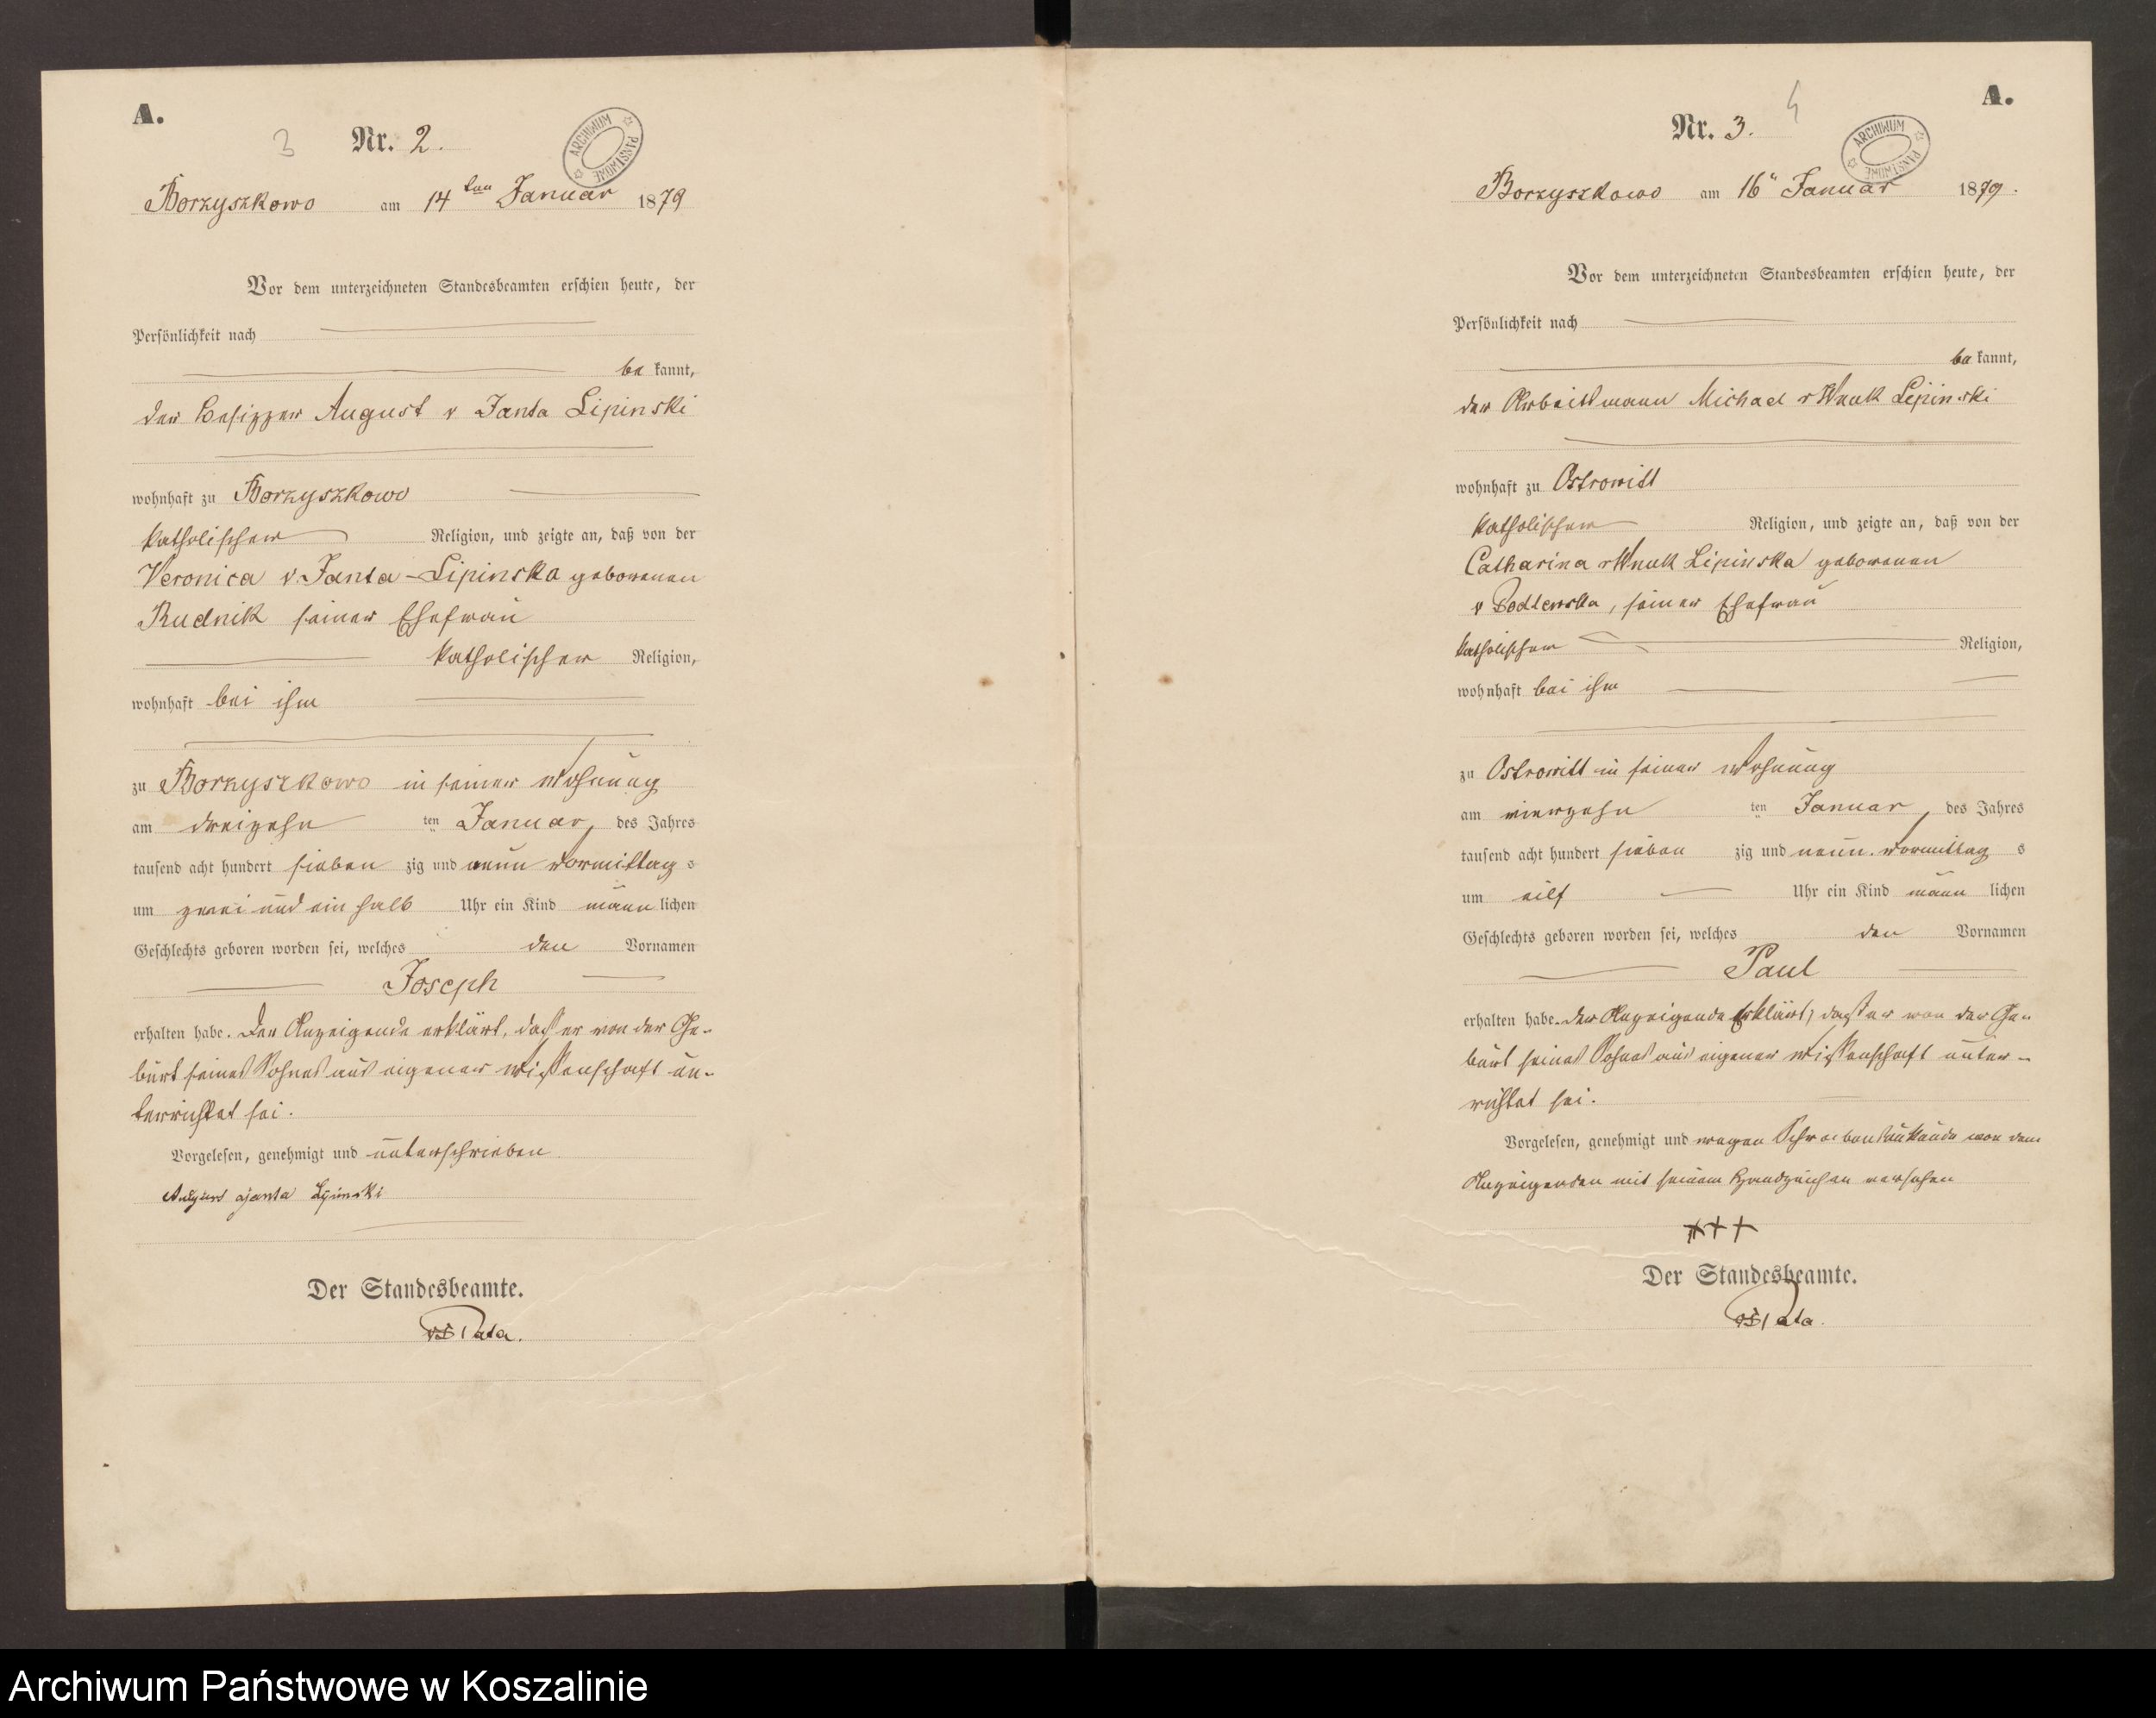 A.
3
Nr. 2.
ARCHIWUM PAŃSTWOWE
Borzyszkowo am 14ten Januar 1879
Vor dem unterzeichneten Standesbeamten erschien heute, der
Persönlichkeit nach
be kannt,
der Besitzer August v Janta Lipinski
wohnhaft zu Borzyszkowo
katholischer Religion, und zeigte an, daß von der
Veronica v. Janta-Lipinska geborenen
Rudnik seiner Ehefrau
katholischer Religion,
wohnhaft bei ihm
zu Borzyszkowo in seiner Wohnung
am dreizehn ten Januar, des Jahres
tausend acht hundert sieben zig und neun Vormittag s
um zwei und ein halb Uhr ein Kind männ lichen
Geschlechts geboren worden sei, welches den Vornamen
Joseph
erhalten habe. Der Anzeigende erklärt, daß er von der Ge-
burt seines Sohnes aus eigener Wissenschaft un-
terrichtet sei.
Vorgelesen, genehmigt und unterschrieben.
ajanta Lipinski
Der Standesbeamte.
Pata.
A.
4
Nr. 3.
ARCHIWUM PAŃSTWOWE
Borzyszkowo am 16" Januar 1879.
Vor dem unterzeichneten Standesbeamten erschien heute, der
Persönlichkeit nach
be kannt,
der Arbeitsmann Michael v Wnuk Lipinski
wohnhaft zu Ostrowitt
katholischer Religion, und zeigte an, daß von der
Catharina v Wnuk Lipinska geborenen
v Podlewska, seiner Ehefrau
katholischer Religion,
wohnhaft bei ihm
zu Ostrowitt in seiner Wohnung
am vierzehn ten Januar, des Jahres
tausend acht hundert sieben zig und neun Vormittag s
um eilf Uhr ein Kind männ lichen
Geschlechts geboren worden sei, welches den Vornamen
Paul
erhalten habe. Der Anzeigende erklärt, daß er von der Ge-
burt seines Sohnes aus eigener Wissenschaft unter-
richtet sei.
Vorgelesen, genehmigt und wegen Schreibensunkunde von dem
Anzeigenden mit seinem Handzeichen versehen
+++
Der Standesbeamte.
Pata.
Archiwum Państwowe w Koszalinie